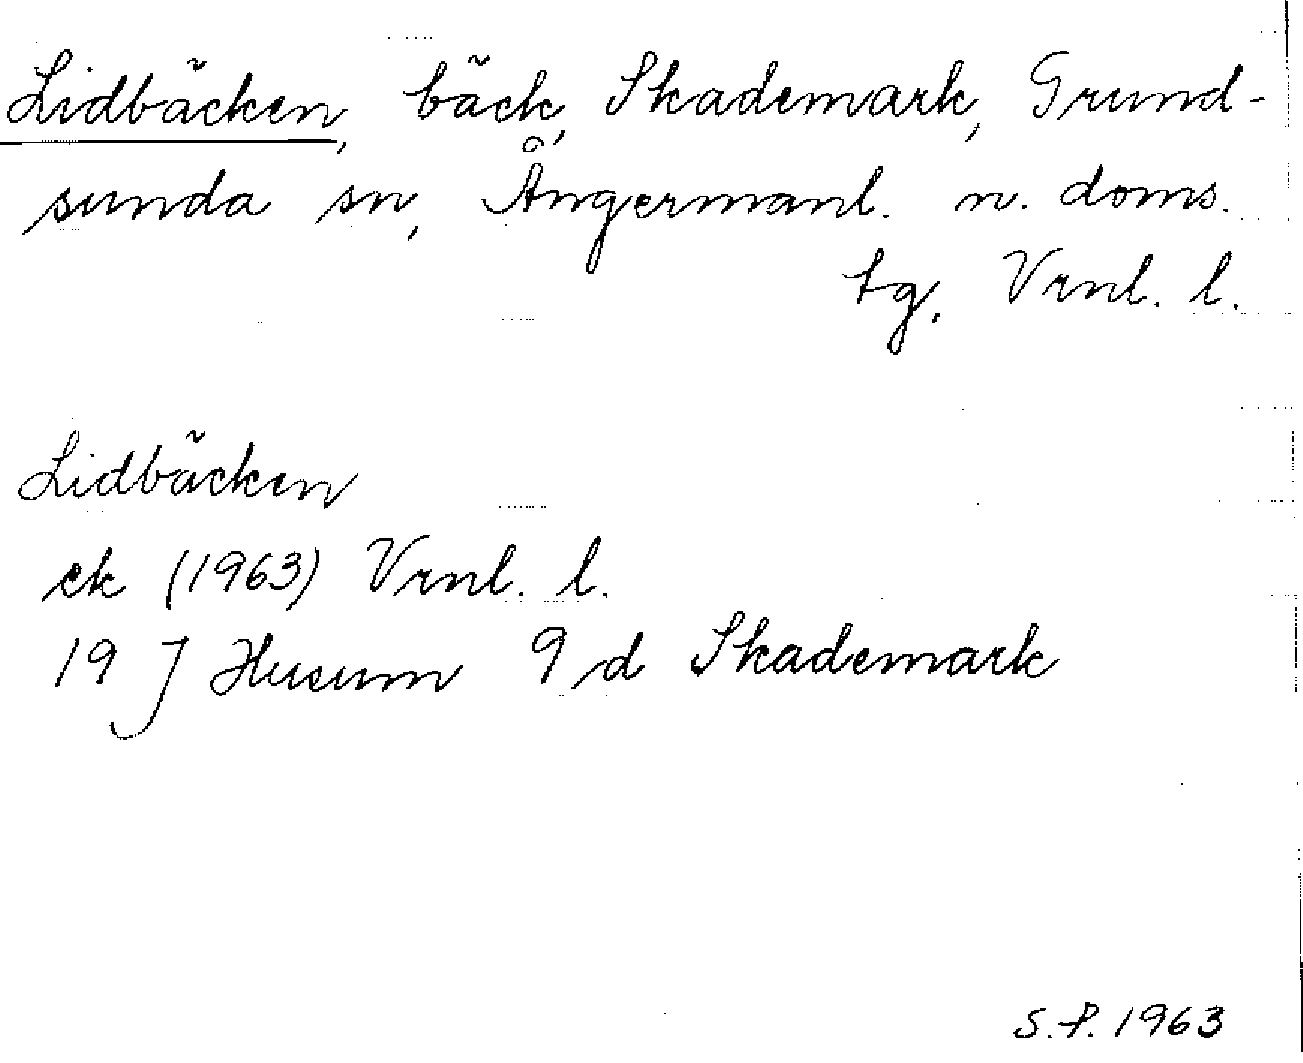 Lidbäcken, bäck, Skademark, Grund-
sunda sn, Ångermanl. n. doms.
tg, Vrnl. l.
Lidbäcken
ek (1963) Vrnl. l.
19 J Husum 9 d Skademark
S.P. 1963